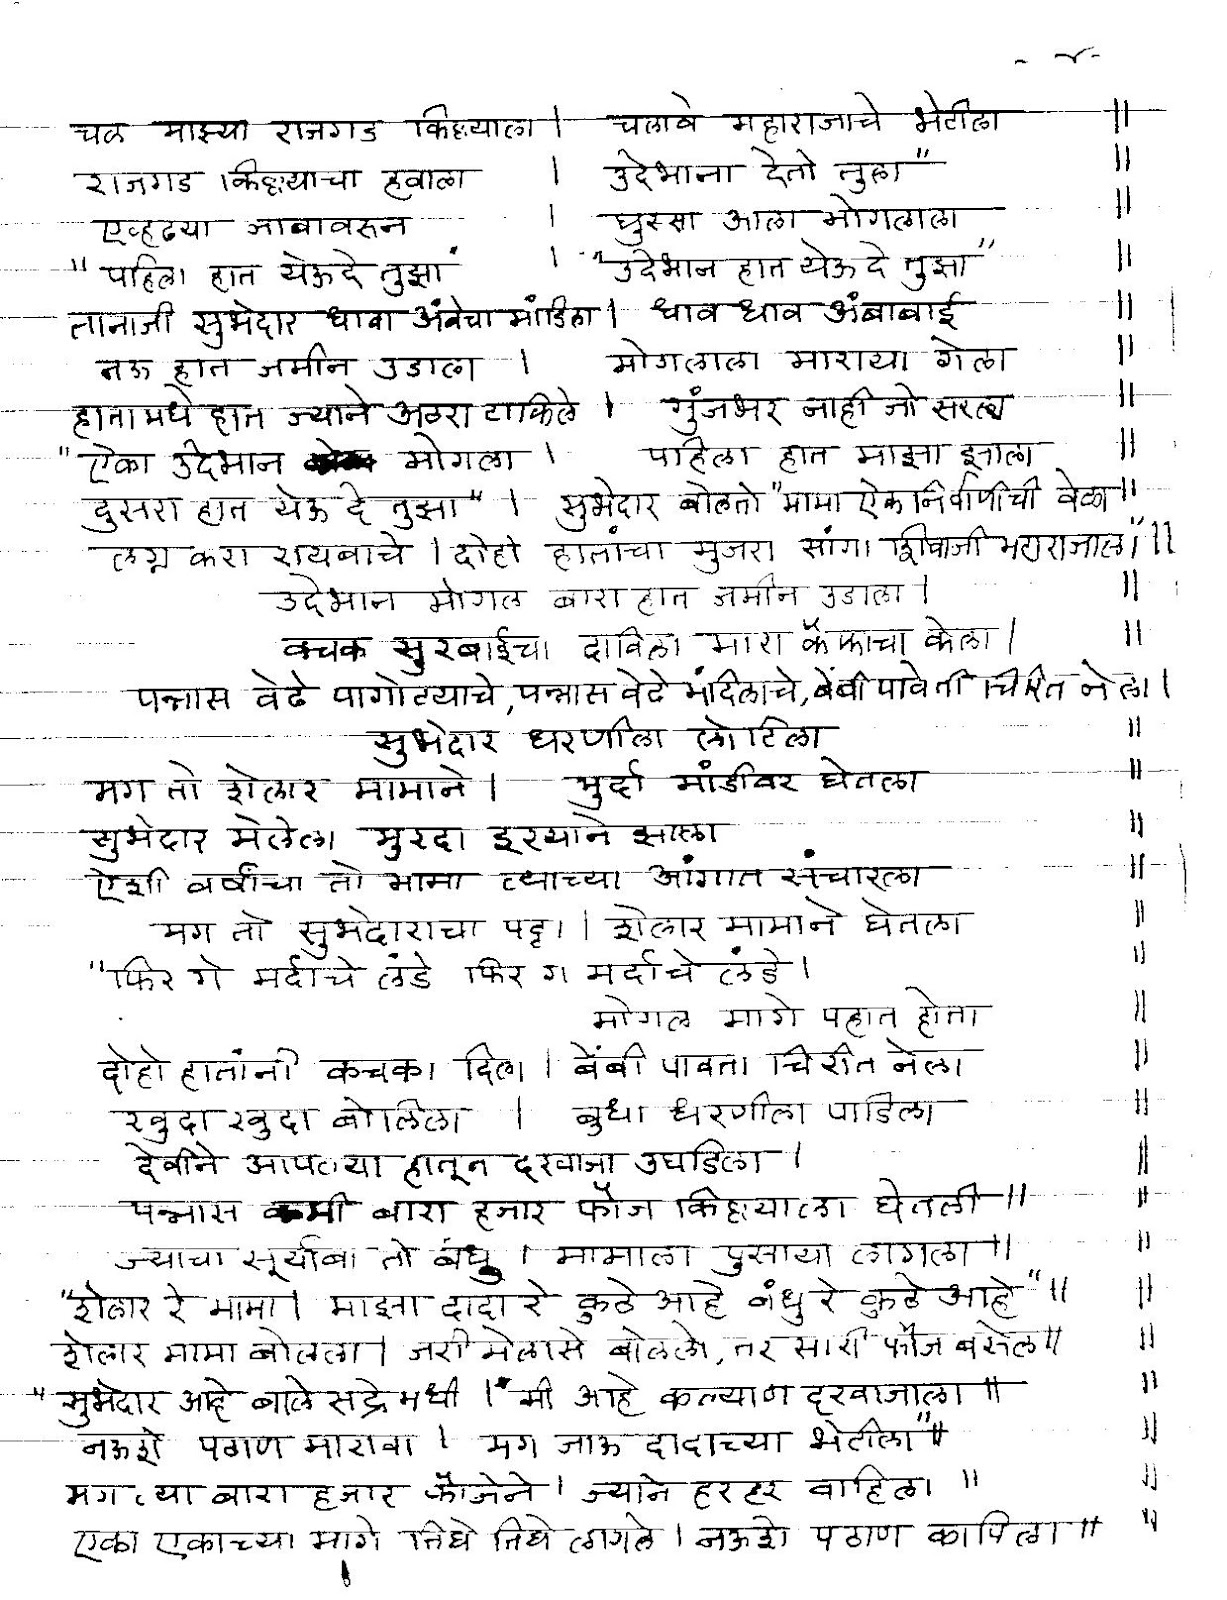 - ४ -
चल माझ्या राजगड किल्ल्याला | चलावे महाराजाचे भेटीला ||
राजगड किल्ल्याचा हवाला | उदेभाना देतो तुला" ||
एव्हढया जाबावरून | घुस्सा आला मोगलाला ||
"पहिला हात येऊ दे तुझा | "उदेभान हात येऊ दे तुझा" ||
तानाजी सुभेदार धावा अंबेचा मांडिला | धाव धाव अंबाबाई ||
नऊ हात जमीन उडाला | मोगलाला माराया गेला ||
हातामधे हात ज्याने अठरा टाकिले | गुंजभर नाही जो सरला ||
"ऐका उदेभान मोगला | पहिला हात माझा झाला ||
दुसरा हात येऊ दे तुझा" | सुभेदार बोलतो "मामा ऐका निर्वाणीची वेळा ||
लग्न करा रायबाचे | दोहो हातांचा मुजरा सांगा शिवाजी महाराजाला" ||
उदेभान मोगल बारा हात जमीन उडाला | ||
क्चक सुरबाईचा दाविला मारा कैफाचा केला | ||
पन्नास वेढे पागोटयाचे, पन्नास वेढे मंदिलाचे, बेंबी पावेती चिरीत नेला |
सुभेदार धरणीला लोटिला ||
मग तो शेलार मामाने | मुर्दा मांडीवर घेतला ||
सुभेदार मेलेला मुरदा इरयाने झाला ||
ऐशी वर्षांचा तो मामा त्याच्या आंगात संचारला ||
मग तो सुभेदाराचा पट्टा | शेलार मामाने घेतला ||
"फिर गे मर्दाचे लंडे फिर ग मर्दाचे लंडे | ||
मोगल मागे पहात होता ||
दोहो हातांनी कचका दिला | बेंबी पावता चिरीत नेला ||
खुदा खुदा बोलिला | बुधा धरणीला पाडिला ||
देवीने आपल्या हातून दरवाजा उघडिला | ||
पन्नास कमी बारा हजार फौज किल्ल्याला घेतली || ||
ज्याचा सूर्याबा तो बंधु | मामाला पुसाया लागला || ||
"शेलार रे मामा | माझा दादा रे कुठे आहे बंधु रे कुठे आहे" || ||
शेलार मामा बोलला | जरी मेलासे बोललो, तर सारी फौज बसेल || ||
"सुभेदार आहे बाले सद्रे मधी | मी आहे कल्याण दरवाजाला || ||
नऊशे पठाण मारावा | मग जाऊ दादाच्या भेटीला" || ||
मग त्या बारा हजार फौजेने | ज्याने हरहर वाहिला || ||
एका एकाच्या मागे तिघे तिघे लागले | नऊशे पठाण कापिला || ||